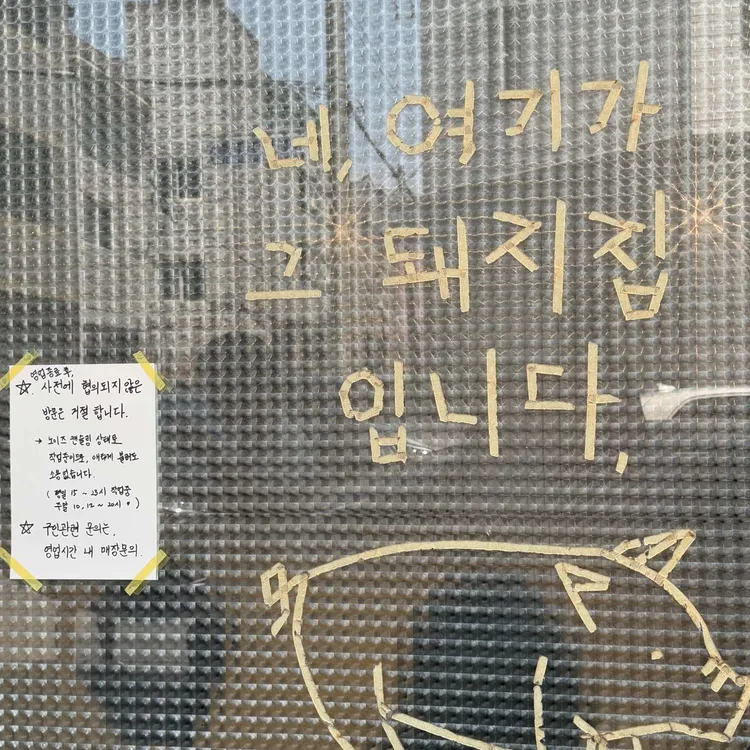 네, 여기가
그 돼지집
입니다,
영업종료 후,
☆. 사전에 협의되지 않은
방문은 거절 합니다.
→ 노이즈 캔슬링 상태로
작업중이므로, 애타게 불러도
소용없습니다.
(평일 15 ~ 23시 작업중
주말 10, 12 ~ 20시 〃)
☆ 구인관련 문의는,
영업시간 내 매장문의.